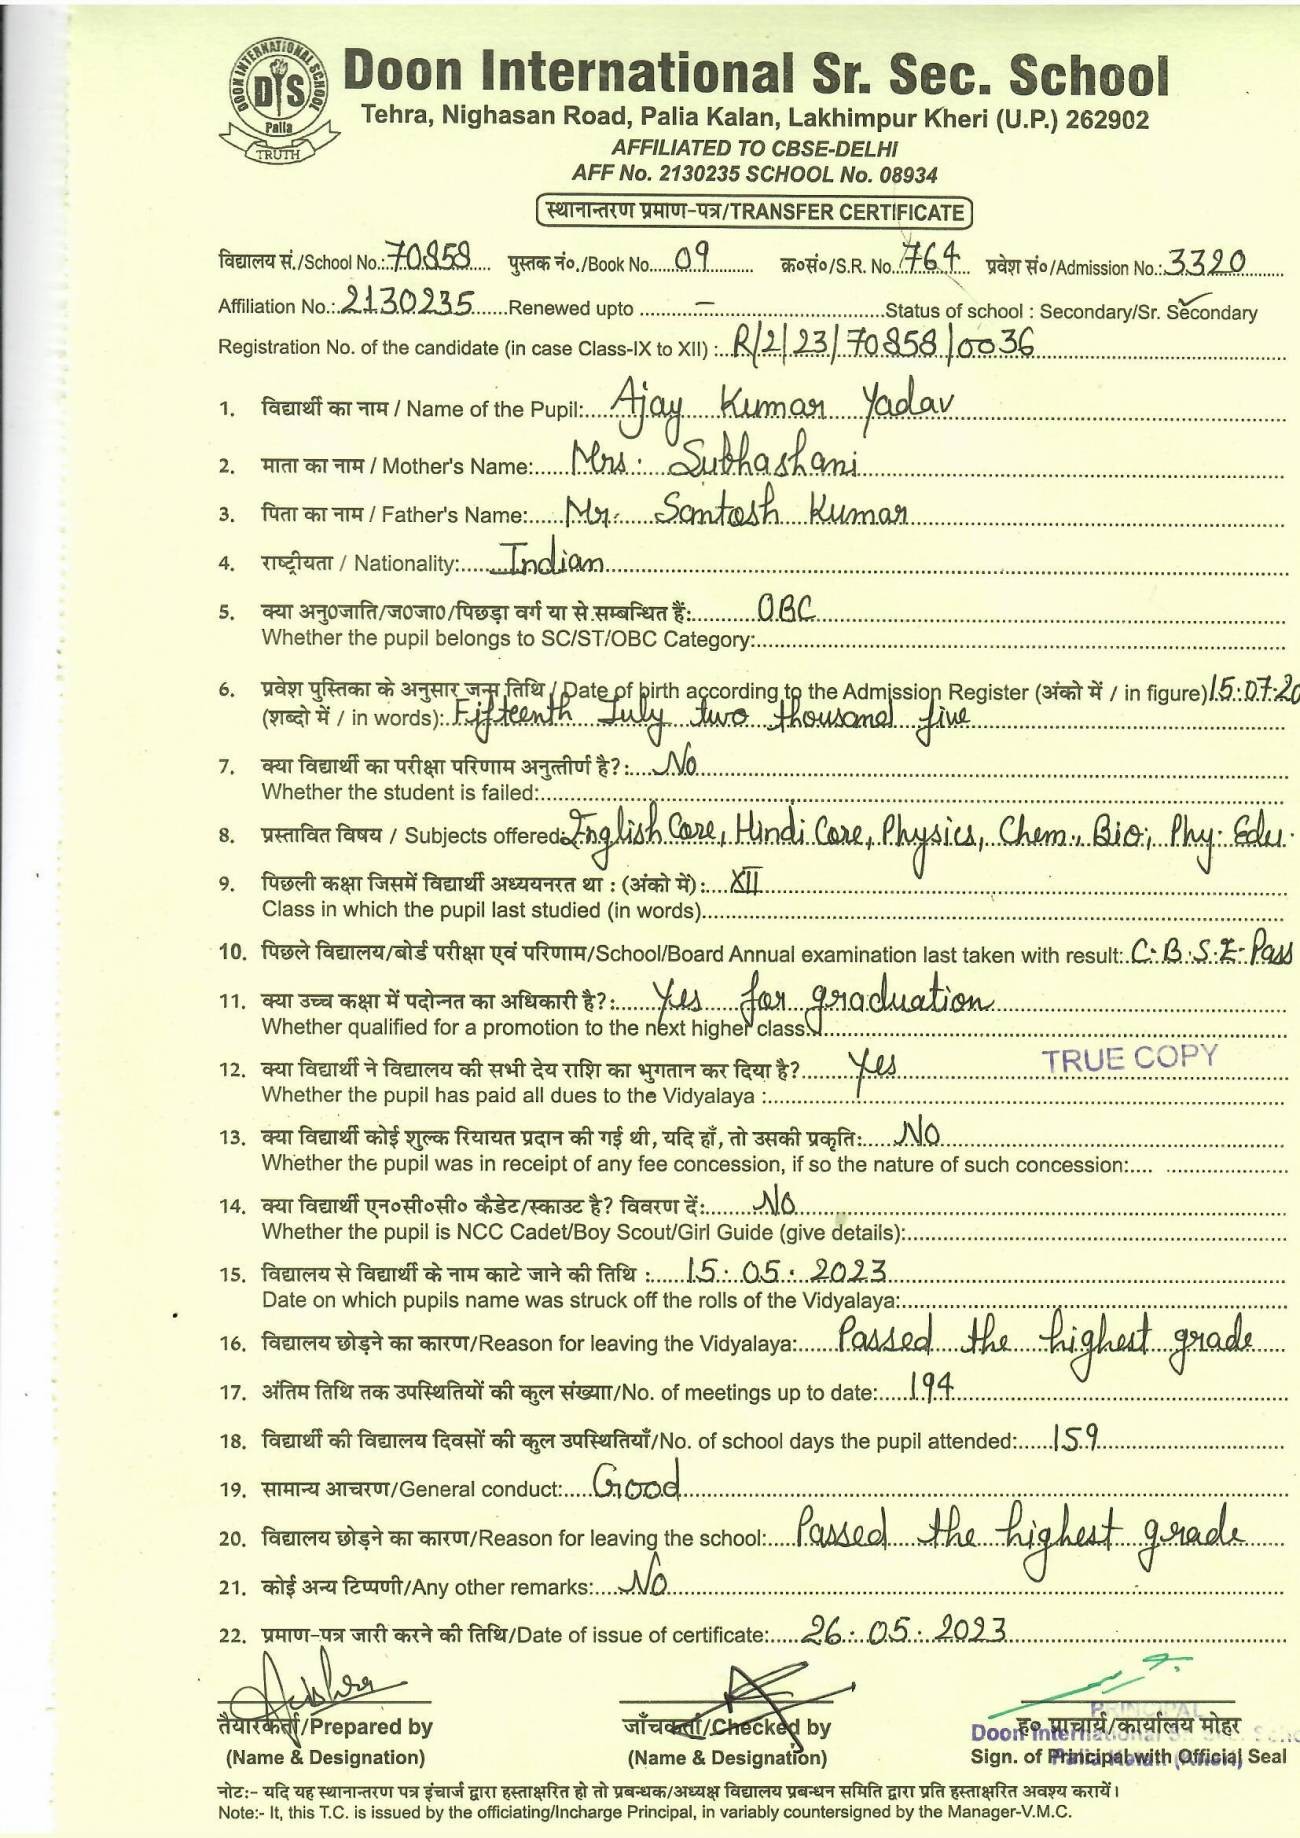 DOON INTERNATIONAL SCHOOL
DIS
Palia
TRUTH
Doon International Sr. Sec. School
Tehra, Nighasan Road, Palia Kalan, Lakhimpur Kheri (U.P.) 262902
AFFILIATED TO CBSE-DELHI
AFF No. 2130235 SCHOOL No. 08934
स्थानान्तरण प्रमाण-पत्र/TRANSFER CERTIFICATE
विद्यालय सं./School No.: 70858 पुस्तक नं०./Book No. 09 क्र०सं०/S.R. No. 764 प्रवेश सं०/Admission No.: 3320
Affiliation No.: 2130235 Renewed upto – Status of school : Secondary/Sr. Secondary
Registration No. of the candidate (in case Class-IX to XII) : R/2/23/70858/0036
1. विद्यार्थी का नाम / Name of the Pupil: Ajay Kumar Yadav
2. माता का नाम / Mother's Name: Mrs. Subhashani
3. पिता का नाम / Father's Name: Mr. Santosh Kumar
4. राष्ट्रीयता / Nationality: Indian
5. क्या अनु0जाति/ज0जा0/पिछड़ा वर्ग या से सम्बन्धित हैं: OBC
Whether the pupil belongs to SC/ST/OBC Category:
6. प्रवेश पुस्तिका के अनुसार जन्म तिथि / Date of birth according to the Admission Register (अंको में / in figure) 15.07.20
(शब्दो में / in words): Fifteenth July two thousand five
7. क्या विद्यार्थी का परीक्षा परिणाम अनुत्तीर्ण है?: No
Whether the student is failed:
8. प्रस्तावित विषय / Subjects offered: English Core, Hindi Core, Physics, Chem., Bio., Phy. Edu.
9. पिछली कक्षा जिसमें विद्यार्थी अध्ययनरत था : (अंको में): XII
Class in which the pupil last studied (in words)
10. पिछले विद्यालय/बोर्ड परीक्षा एवं परिणाम/School/Board Annual examination last taken with result: C.B.S.E-Pass
11. क्या उच्च कक्षा में पदोन्नत का अधिकारी है?: Yes for graduation
Whether qualified for a promotion to the next higher class
12. क्या विद्यार्थी ने विद्यालय की सभी देय राशि का भुगतान कर दिया है? Yes TRUE COPY
Whether the pupil has paid all dues to the Vidyalaya :
13. क्या विद्यार्थी कोई शुल्क रियायत प्रदान की गई थी, यदि हाँ, तो उसकी प्रकृति: No
Whether the pupil was in receipt of any fee concession, if so the nature of such concession:
14. क्या विद्यार्थी एन०सी०सी० कैडेट/स्काउट है? विवरण दें: No
Whether the pupil is NCC Cadet/Boy Scout/Girl Guide (give details):
15. विद्यालय से विद्यार्थी के नाम काटे जाने की तिथि : 15.05.2023
Date on which pupils name was struck off the rolls of the Vidyalaya:
16. विद्यालय छोड़ने का कारण/Reason for leaving the Vidyalaya: Passed the highest grade
17. अंतिम तिथि तक उपस्थितियों की कुल संख्याा/No. of meetings up to date: 194
18. विद्यार्थी की विद्यालय दिवसों की कुल उपस्थितियाँ/No. of school days the pupil attended: 159
19. सामान्य आचरण/General conduct: Good
20. विद्यालय छोड़ने का कारण/Reason for leaving the school: Passed the highest grade
21. कोई अन्य टिप्पणी/Any other remarks: No
22. प्रमाण-पत्र जारी करने की तिथि/Date of issue of certificate: 26.05.2023
तैयारकर्ता/Prepared by जाँचकर्ता/Checked by ह० प्राचार्य/कार्यालय मोहर
PRINCIPAL
Doon International
(Name & Designation) (Name & Designation) Sign. of Principal with Official Seal
नोट:- यदि यह स्थानान्तरण पत्र इंचार्ज द्वारा हस्ताक्षरित हो तो प्रबन्धक/अध्यक्ष विद्यालय प्रबन्धन समिति द्वारा प्रति हस्ताक्षरित अवश्य करायें।
Note:- It, this T.C. is issued by the officiating/Incharge Principal, in variably countersigned by the Manager-V.M.C.